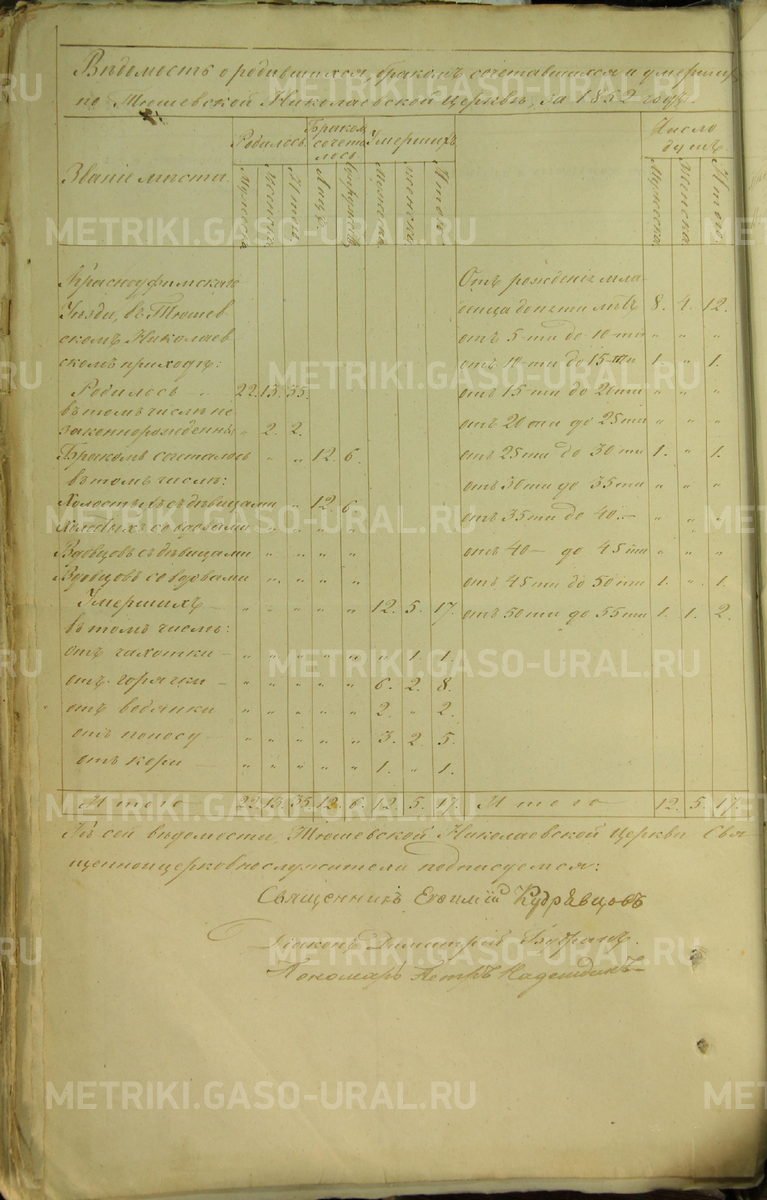 Вѣдомость о родившихся, бракомъ сочетавшихся и умершихъ
по Тюшевской Николаевской Церкви, за 1852 годъ.
Званіе мѣста. Родилось. Бракомъ сочета лось Умершихъ. Число душъ
Мужеска. Женска. Итого. Лицъ. Мужеска. Женска. Итого. Мужеска. Женска. Итого.
Красноуфимскаго Отъ рожденія мла
Уѣзда, въ Тюшев енца до пяти лѣтъ 8. 4. 12.
скомъ Николаев отъ 5-ти до 10-ти „ „ „
скомъ приходѣ: отъ 10-ти до 15-ти 1. „ 1.
Родилось – 22. 13. 35. отъ 15 ти до 20ти „ „ „
въ томъ числѣ не
законнорожденны „ 2. 2. отъ 20 ти до 25 ти „ „ „
Бракомъ сочеталось „ „ 12. 6. отъ 25 ти до 30 ти 1. „ 1.
въ томъ числѣ: отъ 30 ти до 35 ти „ „ „
Холостыхъ съ дѣвицами „ 12 6 отъ 35 ти до 40.– „ „ „
Холостыхъ со вдовами „ „ „ „
Вдовцовъ съ дѣвицами „ „ „ „ отъ 40 – до 45 ти „ „ „
Вдовцовъ со вдовами „ „ „ „ отъ 45 ти до 50 ти 1. „ 1.
Умершихъ – „ „ „ „ „ 12. 5. 17. отъ 50 ти до 55 ти 1. 1. 2.
въ томъ числѣ:
отъ чахотки – „ „ „ „ „ „ 1. 1.
отъ горячки – „ „ „ „ „ 6. 2. 8.
отъ водянки „ „ „ „ „ 2. „ 2.
отъ поносу – „ „ „ „ „ 3. 2. 5.
отъ кори – „ „ „ „ „ 1. „ 1.
Итого – 22. 13. 35. 12. 6. 12. 5. 17. Итого 12. 5. 17.
Къ сей вѣдомости, Тюшевской Николаевской Церкви Свя
щенноицерковнослужители подписуемся:
Священникъ Евѳимій Кудрявцовъ
Діаконъ Димитрій
Пономарь Петръ Надеждинъ
METRIKI.GASO-URAL.RU